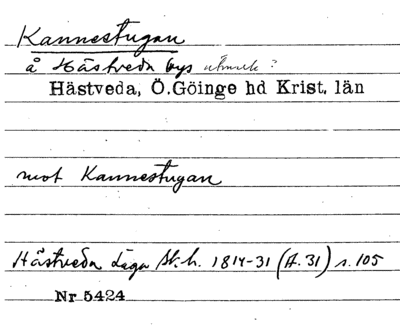 Kannestugan
å Hästveda bys utmark:
Hästveda, Ö.Göinge hd Krist. län
mot Kannestugan
Hästveda Laga St.h. 1814-31 (A.31) s. 105
Nr 5424